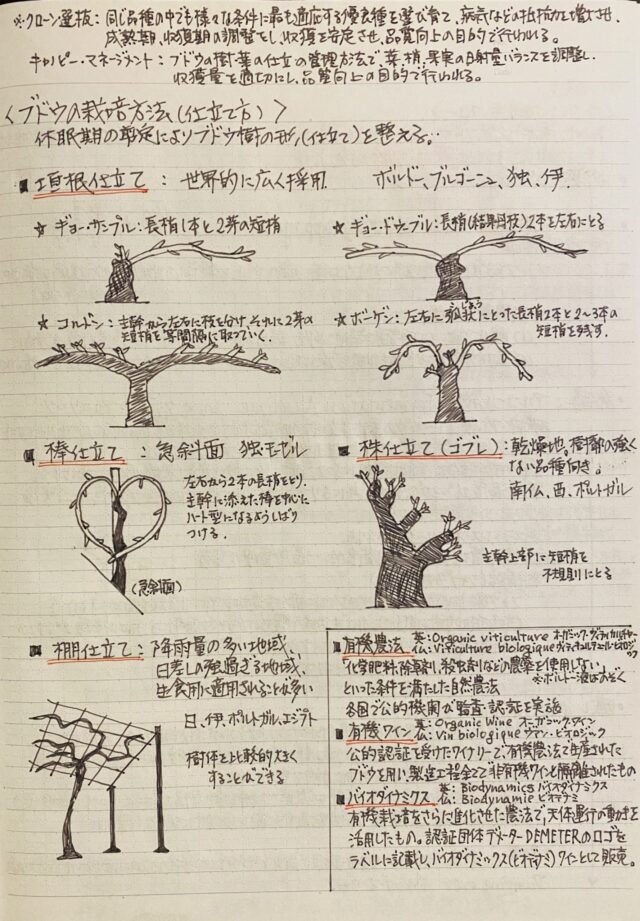 ※クローン選抜：同じ品種の中でも様々な条件に最も適応する優良種を選び育て、病気などの抵抗力を増させ、
成熟期、収穫期の調整をし、収穫を安定させ、品質向上の目的で行われる。
キャノピー・マネージメント：ブドウの樹・葉の仕立の管理方法で、葉、梢、果実の日射量バランスを調整し、
収穫量を適切にし、品質向上の目的で行われる。
〈ブドウの栽培方法(仕立て方)〉
休眠期の剪定によりブドウ樹の形(仕立て)を整える。
■垣根仕立て：世界的に広く採用 ボルドー、ブルゴーニュ、独、伊.
☆ギヨー・サンプル：長梢1本と2芽の短梢
☆ギヨー・ドゥーブル：長梢(結果母枝)2本を左右にとる
☆コルドン：主幹から左右に枝を分け、それに2芽の
短梢を等間隔に取っていく.
☆ボーゲン：左右に弧状にとった長梢2本と2〜3本の
じょう
短梢を残す.
■棒仕立て：急斜面 独・モーゼル
左右から2本の長梢をとり、
主幹に添えた棒を中心に
ハート型になるようしばり
つける.
(急斜面)
■株仕立て(ゴブレ)：乾燥地。樹勢の強く
ない品種向き。
南仏、西、ポルトガル
主幹上部に短梢を
不規則にとる
■棚仕立て：降雨量の多い地域、
日差しの強過ぎる地域、
生食用に適用されることが多い
日、伊、ポルトガル、エジプト
樹体を比較的大きく
することができる
■有機農法 英：Organic viticulture オーガニック・ヴィティカルチャー
仏：Viticulture biologique ヴィティキュルテュール・ビオロジック
「化学肥料、除草剤、殺虫剤などの農薬を使用しない」
といった条件を満たした自然農法 ※ボルドー液はのぞく
各国で公的機関が監査・認証を実施
■有機ワイン 英：Organic Wine オーガニック・ワイン
仏：Vin biologique ヴァン・ビオロジック
公的認証を受けたワイナリーで、有機農法で生産された
ブドウを用い、製造工程全てで非有機ワインと隔離されたもの
■バイオダイナミクス 英：Biodynamics バイオダイナミクス
仏：Biodynamie ビオディナミ
有機栽培をさらに進化させた農法で、天体運行の動きを
活用したもの。認証団体デメターDEMETERのロゴを
ラベルに記載し、バイオダイナミックス(ビオディナミ)ワインとして販売。